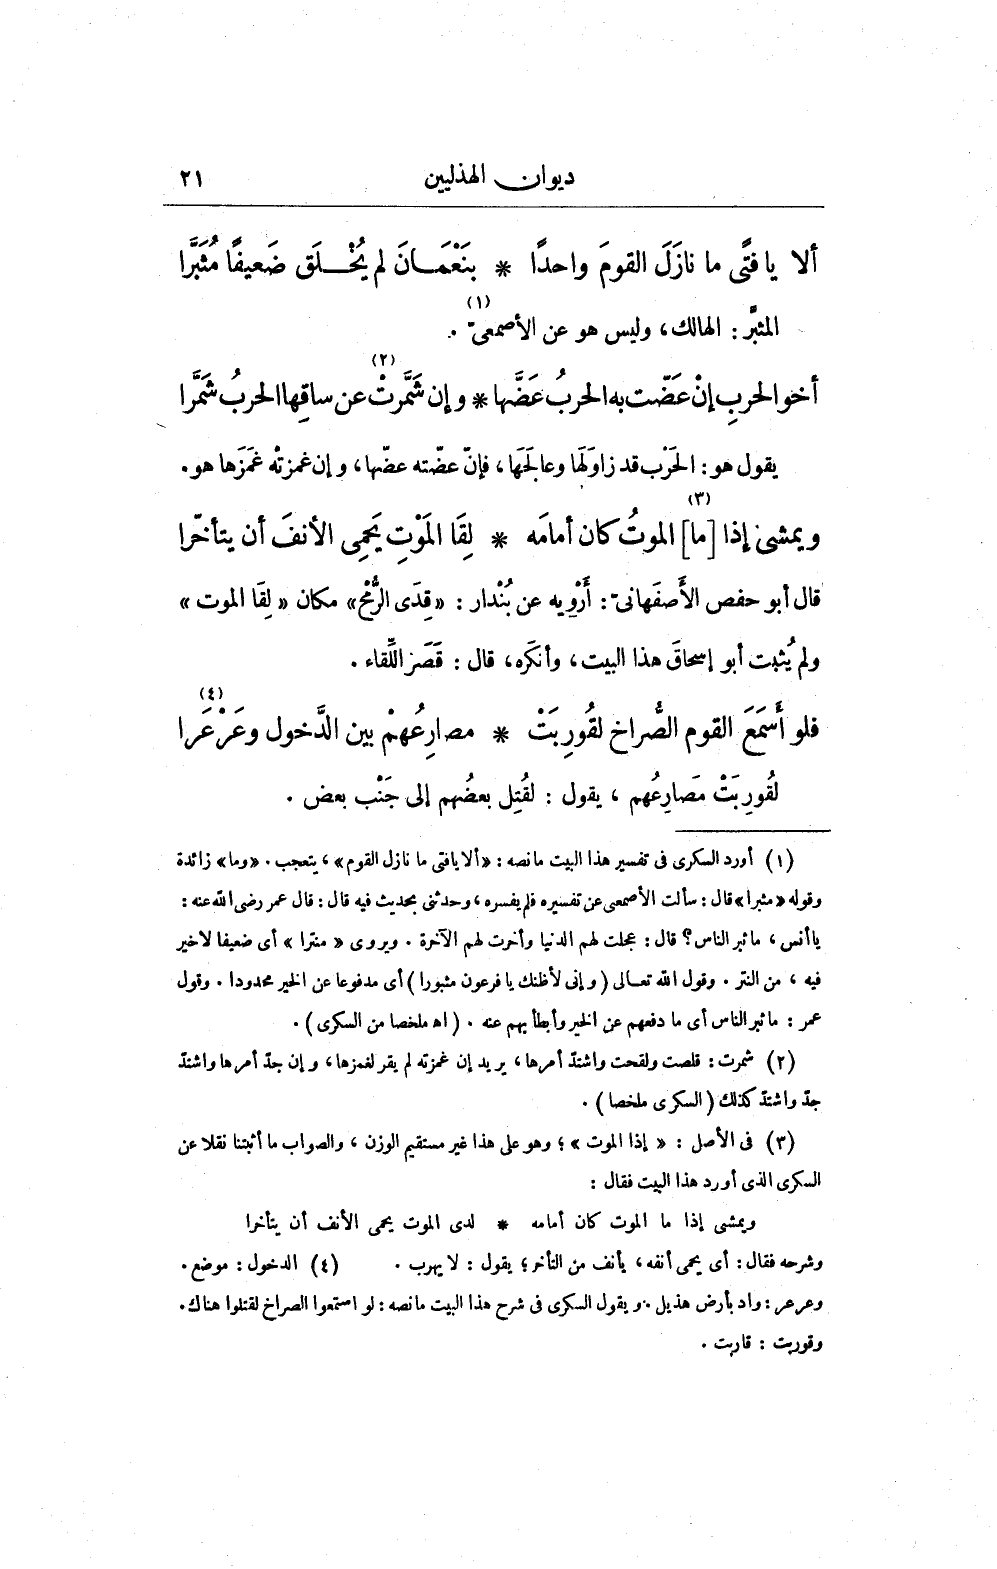 ديوان الهذليين ٢١
ألا يا فتًى ما نازَلَ القومَ واحدًا * بنَعْمَـانَ لم يُخْـلَق ضَعيفًا مُثَبَّرا
المثبَّر : الهالك، وليس هو عن الأصمعىّ (١) .
أخو الحربِ إنْ عَضّت به الحربُ عَضَّها * وإن شَمَّرتْ (٢) عن ساقِها الحربُ شَمَّرا
يقول هو : الحَرْب قد زاوَلَها وعالَجَها، فإنّ عضّته عضّها، وإن غمزتْه غَمَزَها هو .
ويمشى إذا [ما] (٣) الموتُ كان أمامَه * لِقَا المَوْتِ يَحمِى الأنفَ أن يتأخّرا
قال أبو حفص الأَصفَهانىّ : أَرْوِيه عن بُنْدار : «قِدَى الرُّمْح» مكان «لِقَا الموت»
ولم يُثبت أبو إسحاقَ هذا البيت، وأنكَره، قال : قَصَر اللِّقاء .
فلو أَسمَعَ القوم الصُّراخ لقُورِبَتْ * مصارِعُهمْ بين الدَّخول وعَرْعَرا (٤)
لقُورِبَتْ مَصارِعُهم، يقول : لقُتِل بعضُهم إلى جَنْب بعض .
(١) أورد السكرى فى تفسير هذا البيت ما نصه : «ألا يا فتى ما نازل القوم»، يتعجب . «وما» زائدة
وقوله «مثبرا» قال : سألت الأصمعى عن تفسيره فلم يفسره، وحدثنى بحديث فيه قال : قال عمر رضى الله عنه :
يا أنس، ما ثبر الناس؟ قال : عجلت لهم الدنيا وأخرت لهم الآخرة . ويروى «منترا» أى ضعيفا لا خير
فيه، من النتر . وقول الله تعـالى (وإنى لأظنك يا فرعون مثبورا) أى مدفوعا عن الخير محدودا . وقول
عمر : ما ثبر الناس أى ما دفعهم عن الخير وأبطأ بهم عنه . (اه ملخصا من السكرى) .
(٢) شمرت : قلصت ولقحت واشتدّ أمرها، يريد إن غمزته لم يقر لغمزها، وإن جدّ أمرها واشتدّ
جدّ واشتدّ كذلك (السكرى ملخصا) .
(٣) فى الأصل : «إذا الموت»؛ وهو على هذا غير مستقيم الوزن، والصواب ما أثبتنا نقلا عن
السكرى الذى أورد هذا البيت فقال :
ويمشى إذا ما الموت كان أمامه * لدى الموت يحمى الأنف أن يتأخرا
وشرحه فقال : أى يحمى أنفه، يأنف من التأخر؛ يقول : لا يهرب . (٤) الدخول : موضع .
وعرعر : واد بأرض هذيل . ويقول السكرى فى شرح هذا البيت ما نصه : لو استمعوا الصراخ لقتلوا هناك .
وقوربت : قاربت .